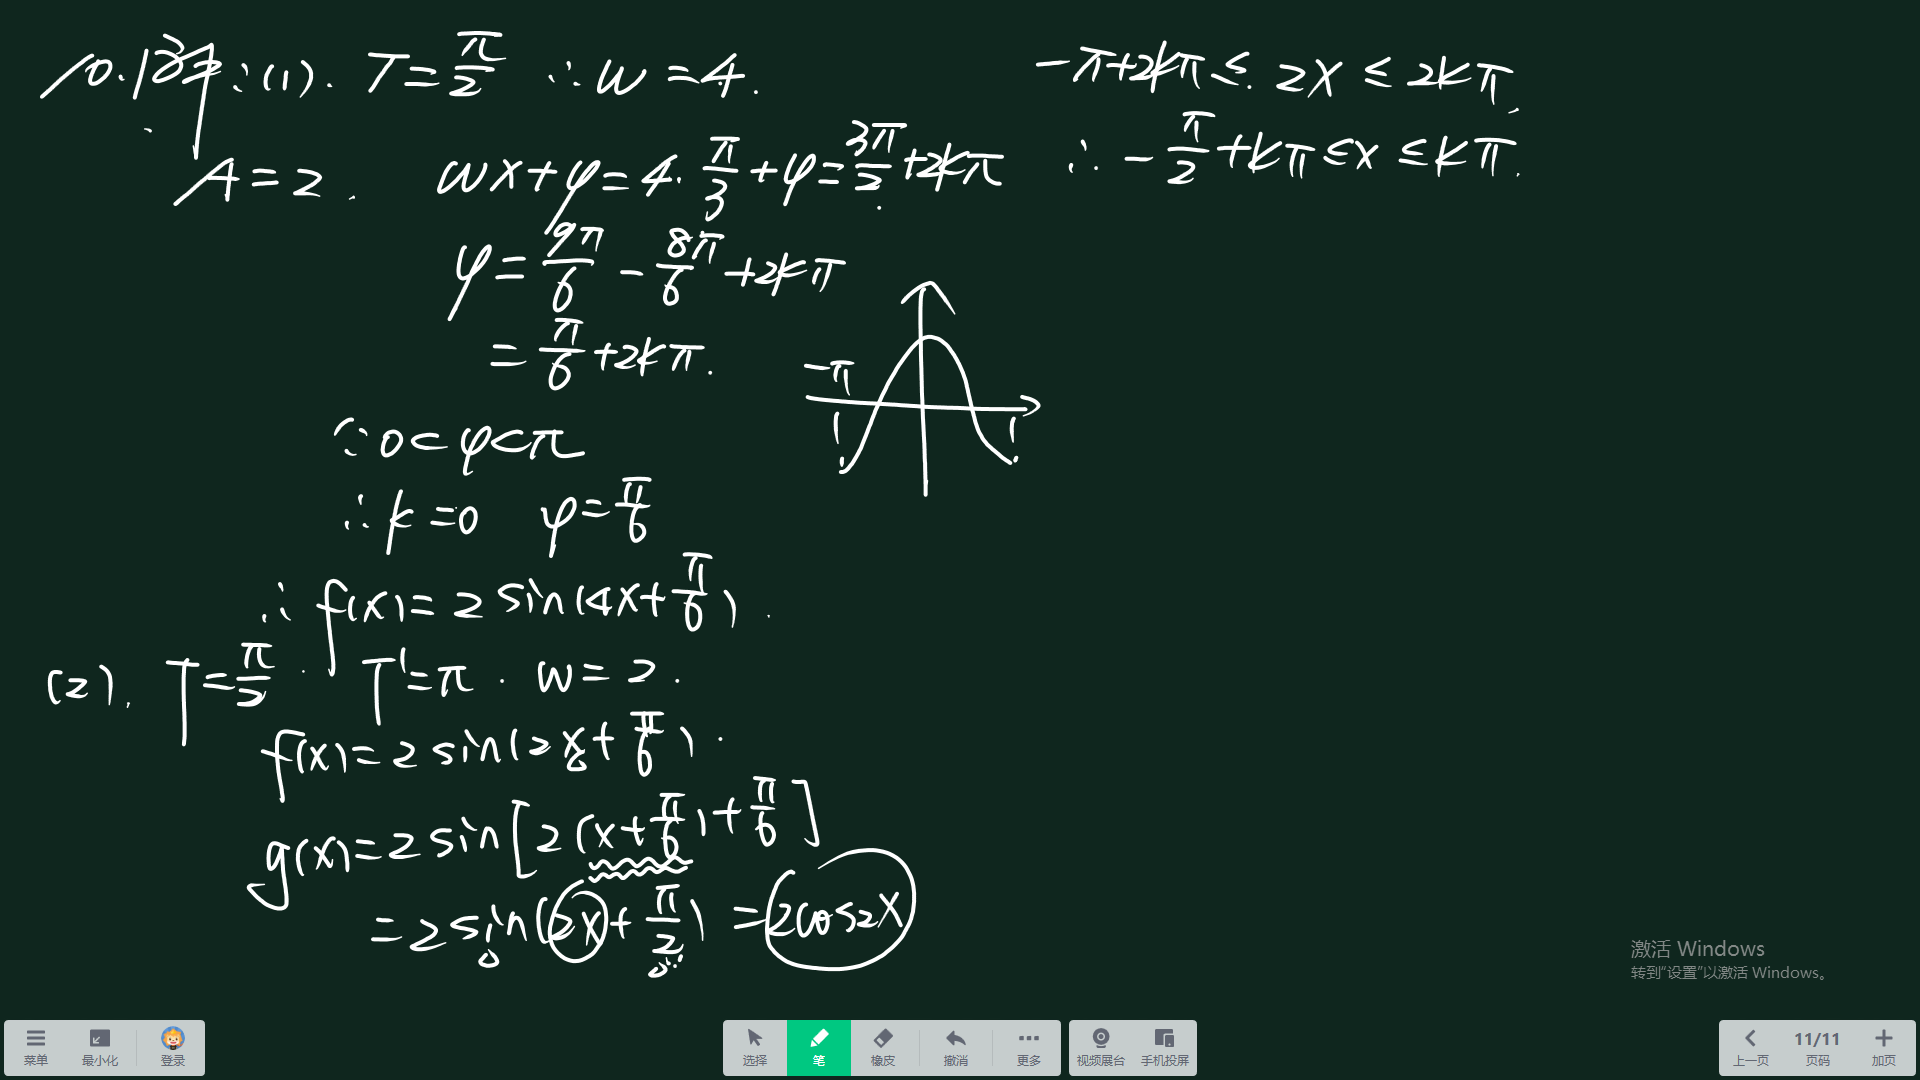 10. 解: (1). T=π/2 ∴ω=4.
A=2. ωx+φ=4·π/3+φ=3π/2+2kπ
φ=9π/6-8π/6+2kπ
=π/6+2kπ.
∵0<φ<π
∴k=0 φ=π/6
∴f(x)=2sin(4x+π/6).
(2). T=π/2. T'=π. ω=2.
f(x)=2sin(2x+π/6).
g(x)=2sin[2(x+π/6)+π/6]
=2sin(2x+π/2)=2cos2x
-π
-π+2kπ≤2x≤2kπ.
∴-π/2+kπ≤x≤kπ.
激活 Windows
转到"设置"以激活 Windows。
菜单 最小化 登录 选择 笔 橡皮 撤消 更多 视频展台 手机投屏 上一页 11/11 页码 加页